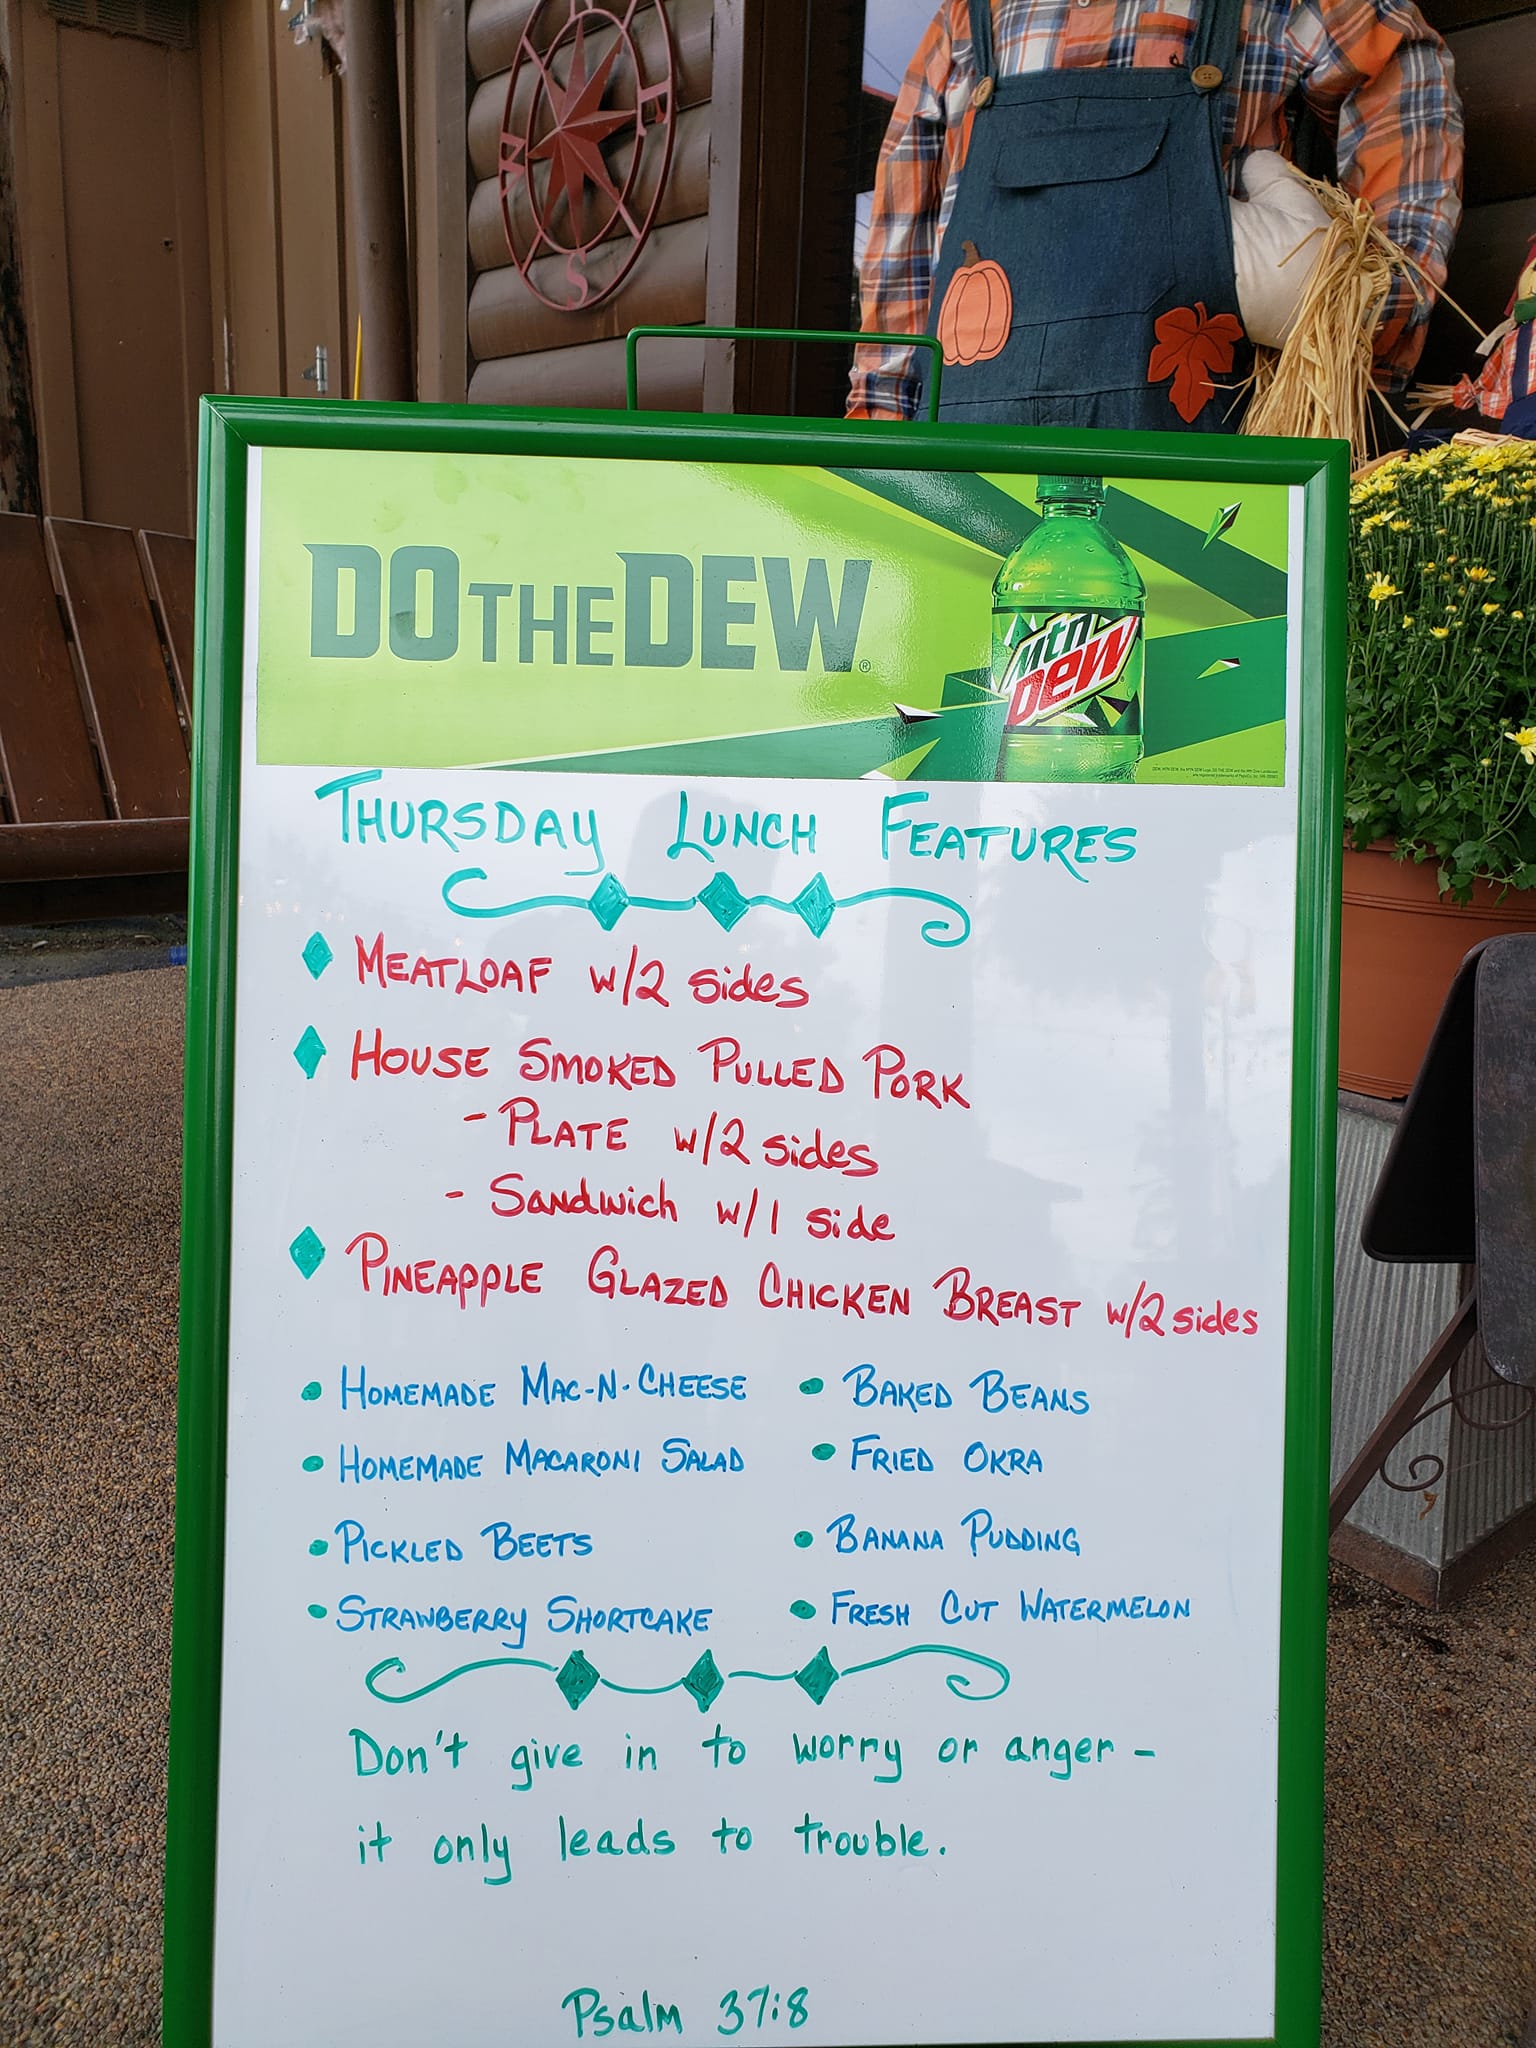 W
E
S
DO THE DEW®
Mtn
DEW
THURSDAY LUNCH FEATURES
MEATLOAF w/2 sides
HOUSE SMOKED PULLED PORK
- PLATE w/2 sides
- Sandwich w/1 side
PINEAPPLE GLAZED CHICKEN BREAST w/2 sides
• HOMEMADE MAC-N-CHEESE • BAKED BEANS
• HOMEMADE MACARONI SALAD • FRIED OKRA
• PICKLED BEETS • BANANA PUDDING
• STRAWBERRY SHORTCAKE • FRESH CUT WATERMELON
Don't give in to worry or anger -
it only leads to trouble.
Psalm 37:8